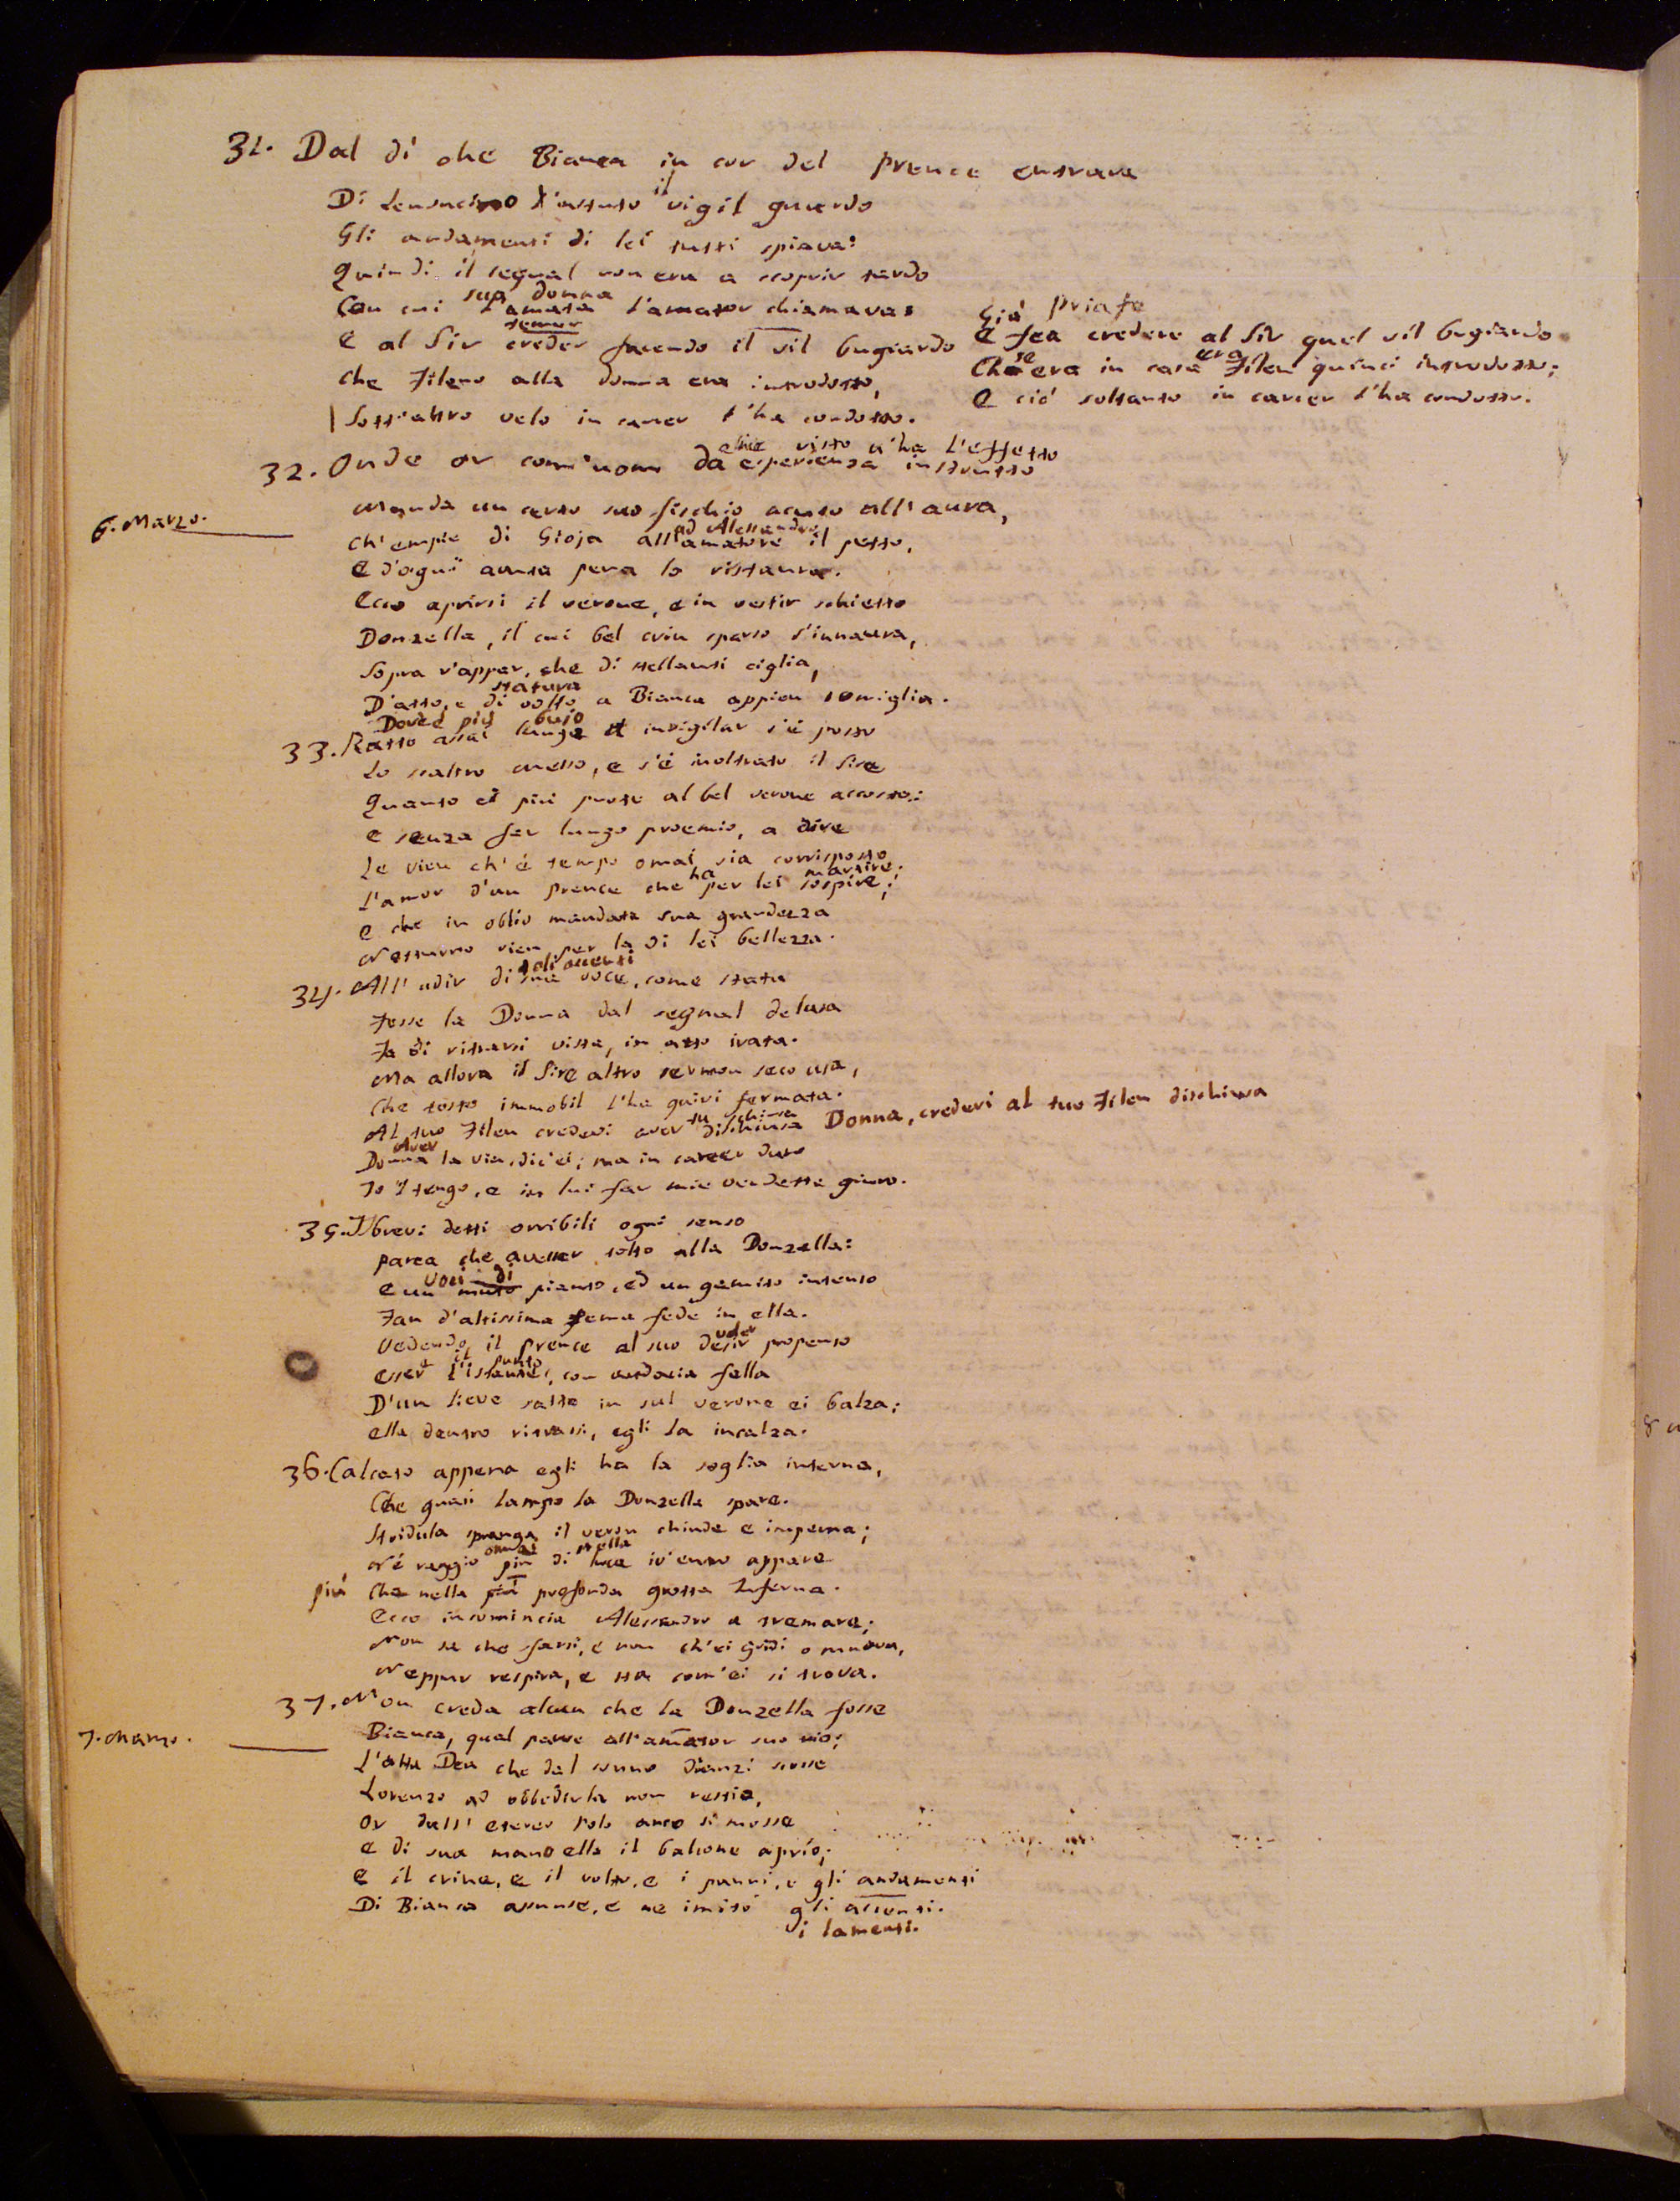 31. Dal dì che Bianca in cor del prence entrava
il
Di Lenoncino l'astuto vigil guardo
Gli andamenti di lei tutti spiava:
Quindi il segnal non era a scoprir tardo
sua donna
Con cui l'amata l'amator chiamava:
temer
E al Sir creder facendo il vil bugiardo
Che Fileno alla donna era introdotto,
Sott'altro velo in carcer l'ha condotto.
Già pria fe
E fea credere al Sir quel vil bugiardo
se era
Che era in casa Filen quinci introdotto;
E ciò soltanto in carcer l'ha condotto.
che visto n'ha l'effetto
32. Onde or com'uom da esperienza instrutto
6. Marzo.
Manda un certo suo fischio acuto all'aura,
ad Alessandro
Ch'empie di Gioja all'amatore il petto,
E d'ogni avuta pena lo ristaura.
Ecco aprirsi il verone, e in vestir schietto
Donzella, il cui bel crin sparso s'innaura,
Sopra v'appar, che di stellanti ciglia,
statura
D'atto, e di volto a Bianca appien somiglia.
Dov'è più bujo
33. Ratto assai lunge a invigilar s'è posto
Lo scaltro messo, e s'è inoltrato il Sire
Quanto ei più puote al bel verone accosto:
E senza far lungo proemio, a dire
Le vien ch'è tempo omai sia corrisposto
ha martire;
L'amor d'un prence che per lei sospire;
E che in oblio mandata sua grandezza
Notturno vien per la di lei bellezza.
tali accenti
34. All'udir di sua voce, come stata
Fosse la Donna dal segnal delusa
Fa di ritrarsi vista, in atto irata.
Ma allora il Sire altro sermon seco usa,
Che tosto immobil l'ha quivi fermata.
tu schiusa
Al tuo Filen credevi aver dischiusa Donna, credevi al tuo Filen dischiusa
Aver
Donna la via, dic'ei; ma in carcer duro
Io 'l tengo, e in lui far mie vendette giuro.
35. I brevi detti orribili ogni senso
Parea che avesser tolto alla Donzella:
voci di
E un muto pianto, ed un gemito intenso
Fan d'altissima tema fede in ella.
voler
Vedendo il prence al suo desir propenso
il punto
Esser l'istante, con audacia fella
D'un lieve salto in sul verone ei balza;
Ella dentro ritrassi, egli la incalza.
36. Calcato appena egli ha la soglia interna,
Che quasi lampo la Donzella spare.
Stridula spranga il veron chiude e imperna;
omai stella
Nè raggio più di luce iv'entro appare
più Che nella più profonda grotta Inferna.
Ecco incomincia Alessandro a tremare;
Non sa che farsi, e non ch'ei gridi o muova,
Neppur respira, e sta com'ei si trova.
37. Non creda alcun che la Donzella fosse
7. Marzo.
Bianca, qual parve all'amator suo rio;
L'alta Dea che dal sonno dianzi scosse
Lorenzo ad obbedirla non restio,
Or dall'etereo polo anco si mosse
E di sua mano ella il balcone aprìo;
E il crine, e il volto, e i panni, e gli andamenti
Di Bianca assunse, e ne imitò gli accenti.
i lamenti.